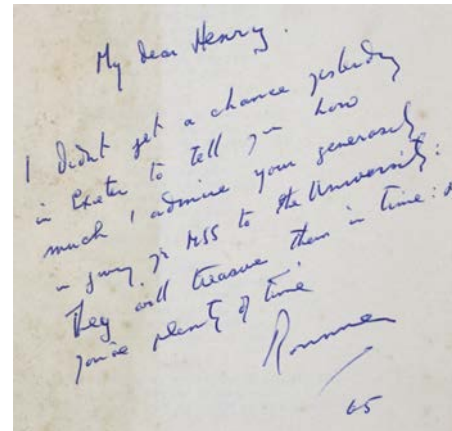 My dear Henry.
I didnt get a chance yesterday
in Exeter to tell you how
much I admire your generosity
in giving yr MSS to the University:
They will treasure them in time:
you've plenty of time
65